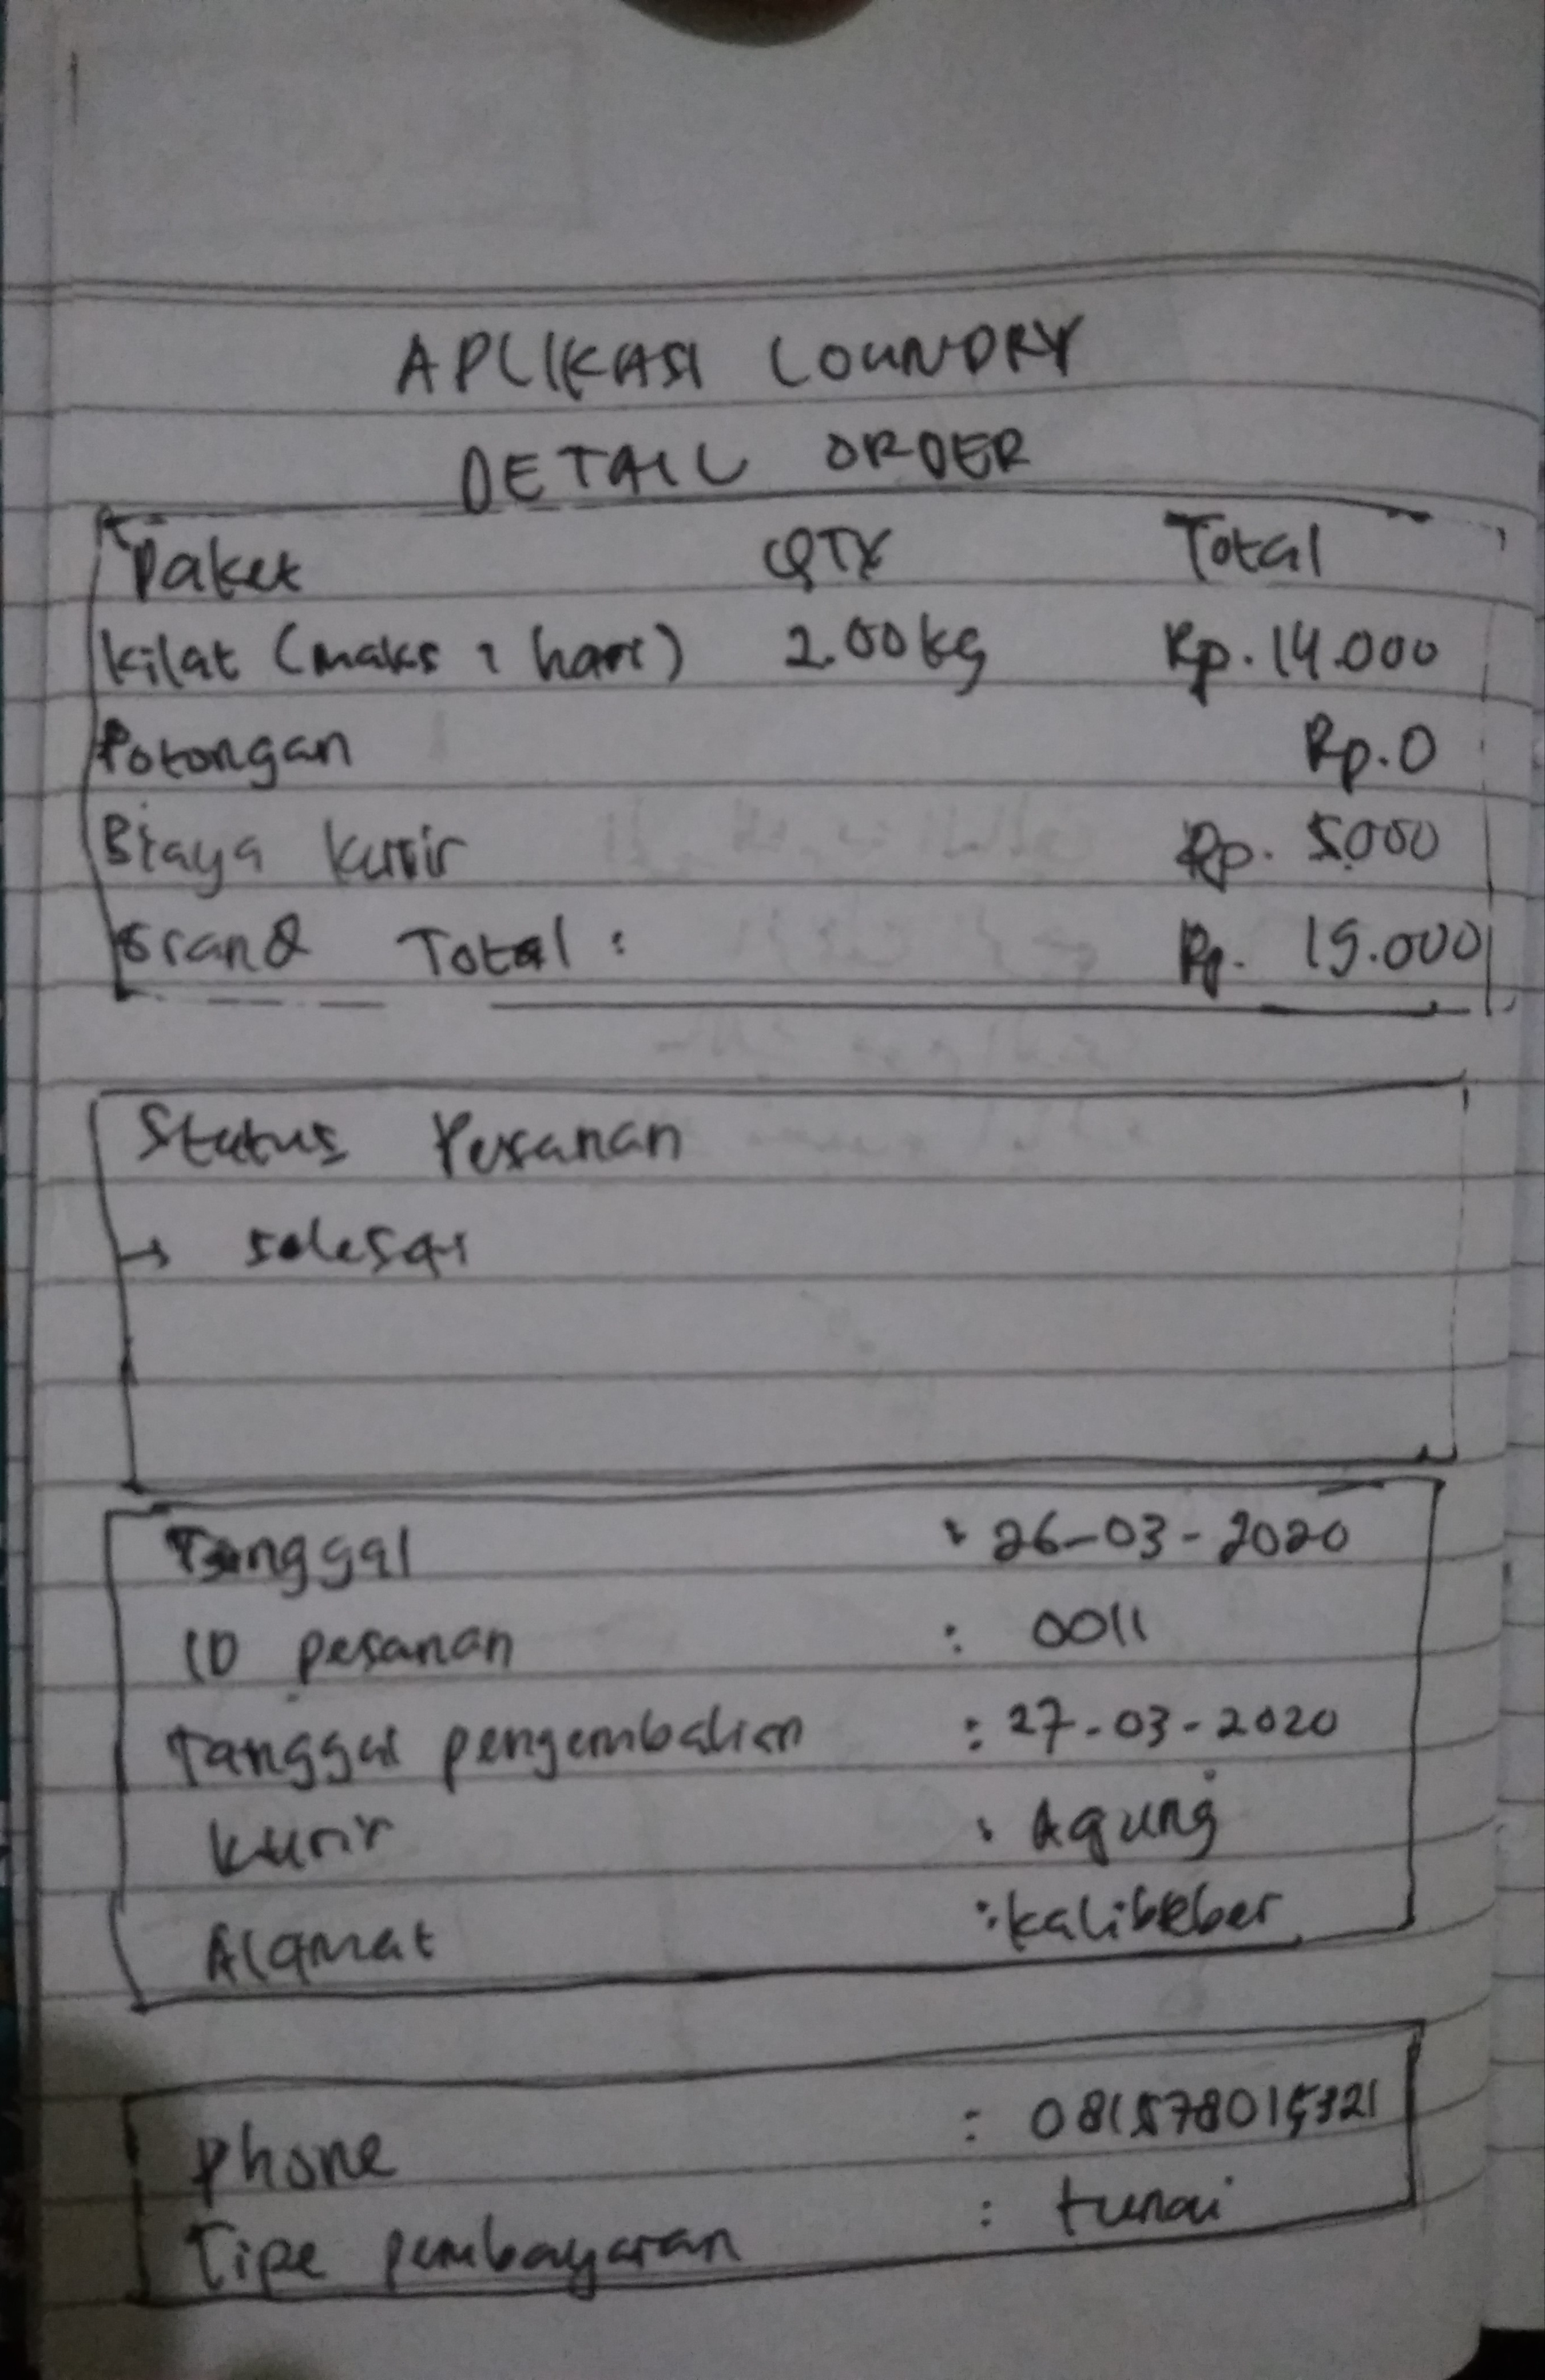 APLIKASI LOUNDRY
DETAIL ORDER
Paket QTY Total
Kilat (maks 1 hari) 2.00 kg Rp. 14.000
Potongan Rp. 0
Biaya Kurir Rp. 5.000
Grand Total : Rp. 19.000
Status Pesanan
→ selesai
Tanggal : 26-03-2020
ID pesanan : 0011
Tanggal pengembalian : 27-03-2020
Kurir : Agung
Alamat : kalibeber
Phone : 081578015321
Tipe pembayaran : tunai